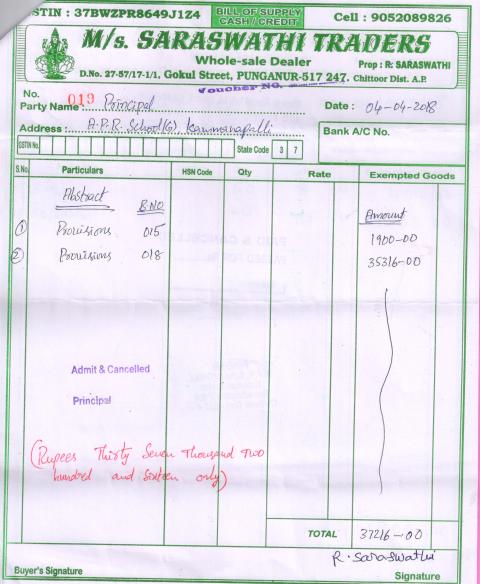 STIN : 37BWZPR8649J1Z4 BILL OF SUPPLY Cell : 9052089826
CASH / CREDIT
M/s. SARASWATHI TRADERS
Whole-sale Dealer Prop : R: SARASWATHI
D.No. 27-57/17-1/1, Gokul Street, PUNGANUR-517 247. Chittoor Dist. A.P.
Voucher NO.
No. 019
Party Name : Principal Date : 04-04-2018
Address : A.P.R. School(G), Bank A/C No.
GSTIN No. State Code 3 7
S.No. Particulars HSN Code Qty Rate Exempted Goods
Abstract B.NO Amount
① Provisions 015 1900-00
② Provisions 018 35316-00
Admit & Cancelled
Principal
(Rupees Thirty Seven Thousand Two
hundred and Sixteen only)
TOTAL 37216-00
R. Saraswathi
Buyer's Signature Signature